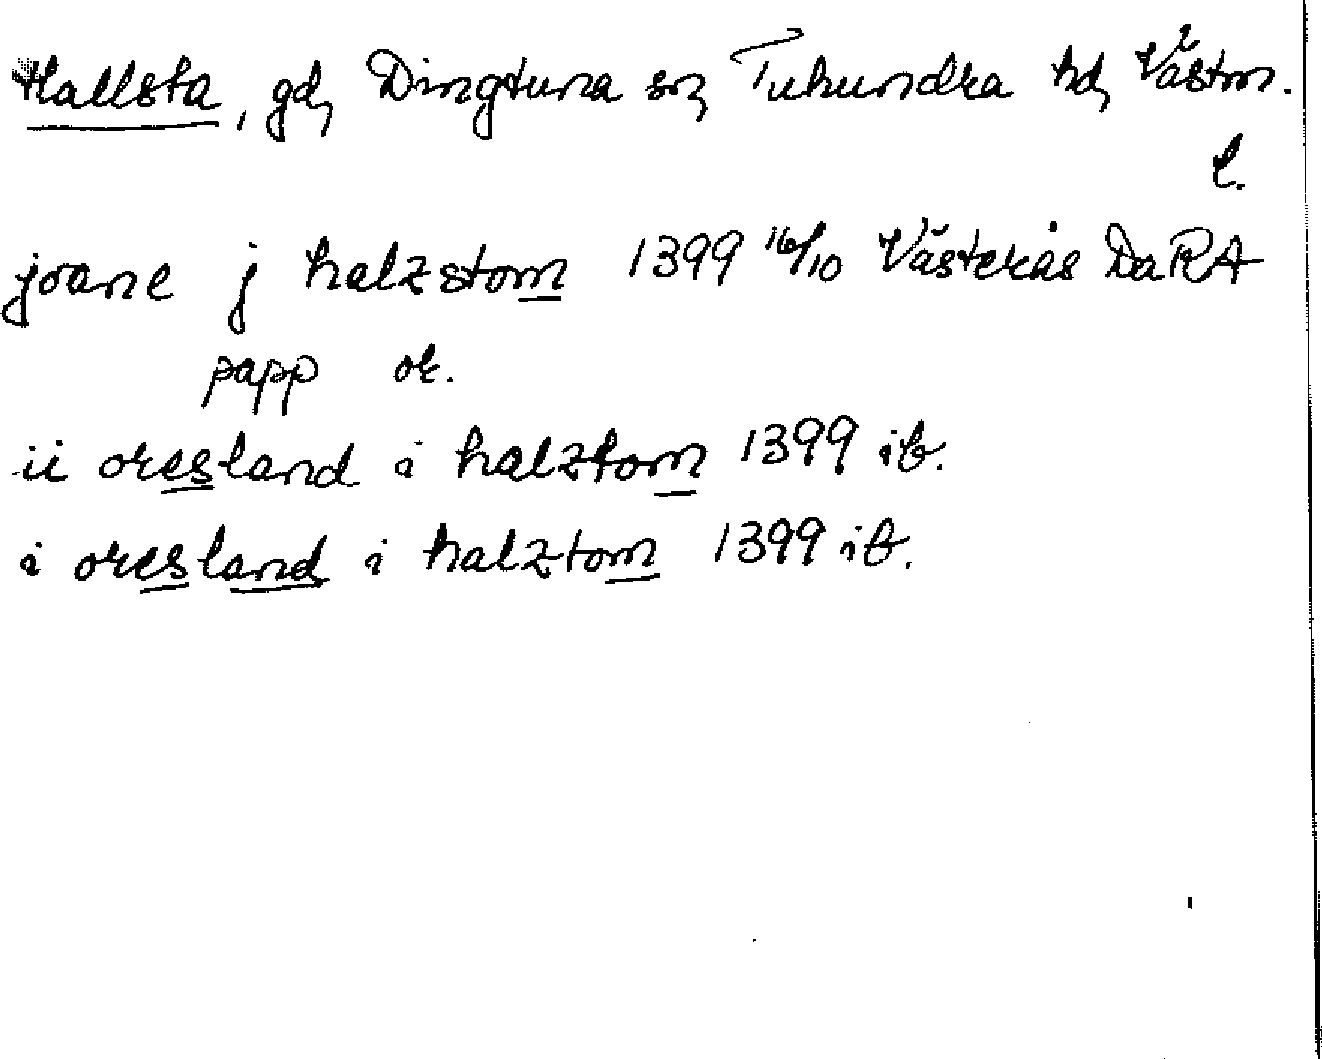 Hallsta, gd, Dingtuna sn, Tuhundra hd, Västm.
l.
joane j halzstom 1399 16/10 Västerås DaRA
papp or.
ii oresland i halztom 1399 ib.
i oresland i halztom 1399 ib.